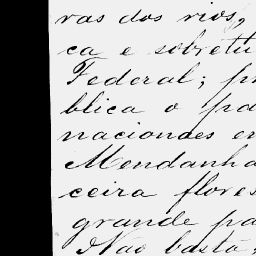 vas dos rios,
ca e sobretu
Federal; pr
blica o pa
nacionaes en
Mendanha
ceira flores
grande pa
Nao basta,